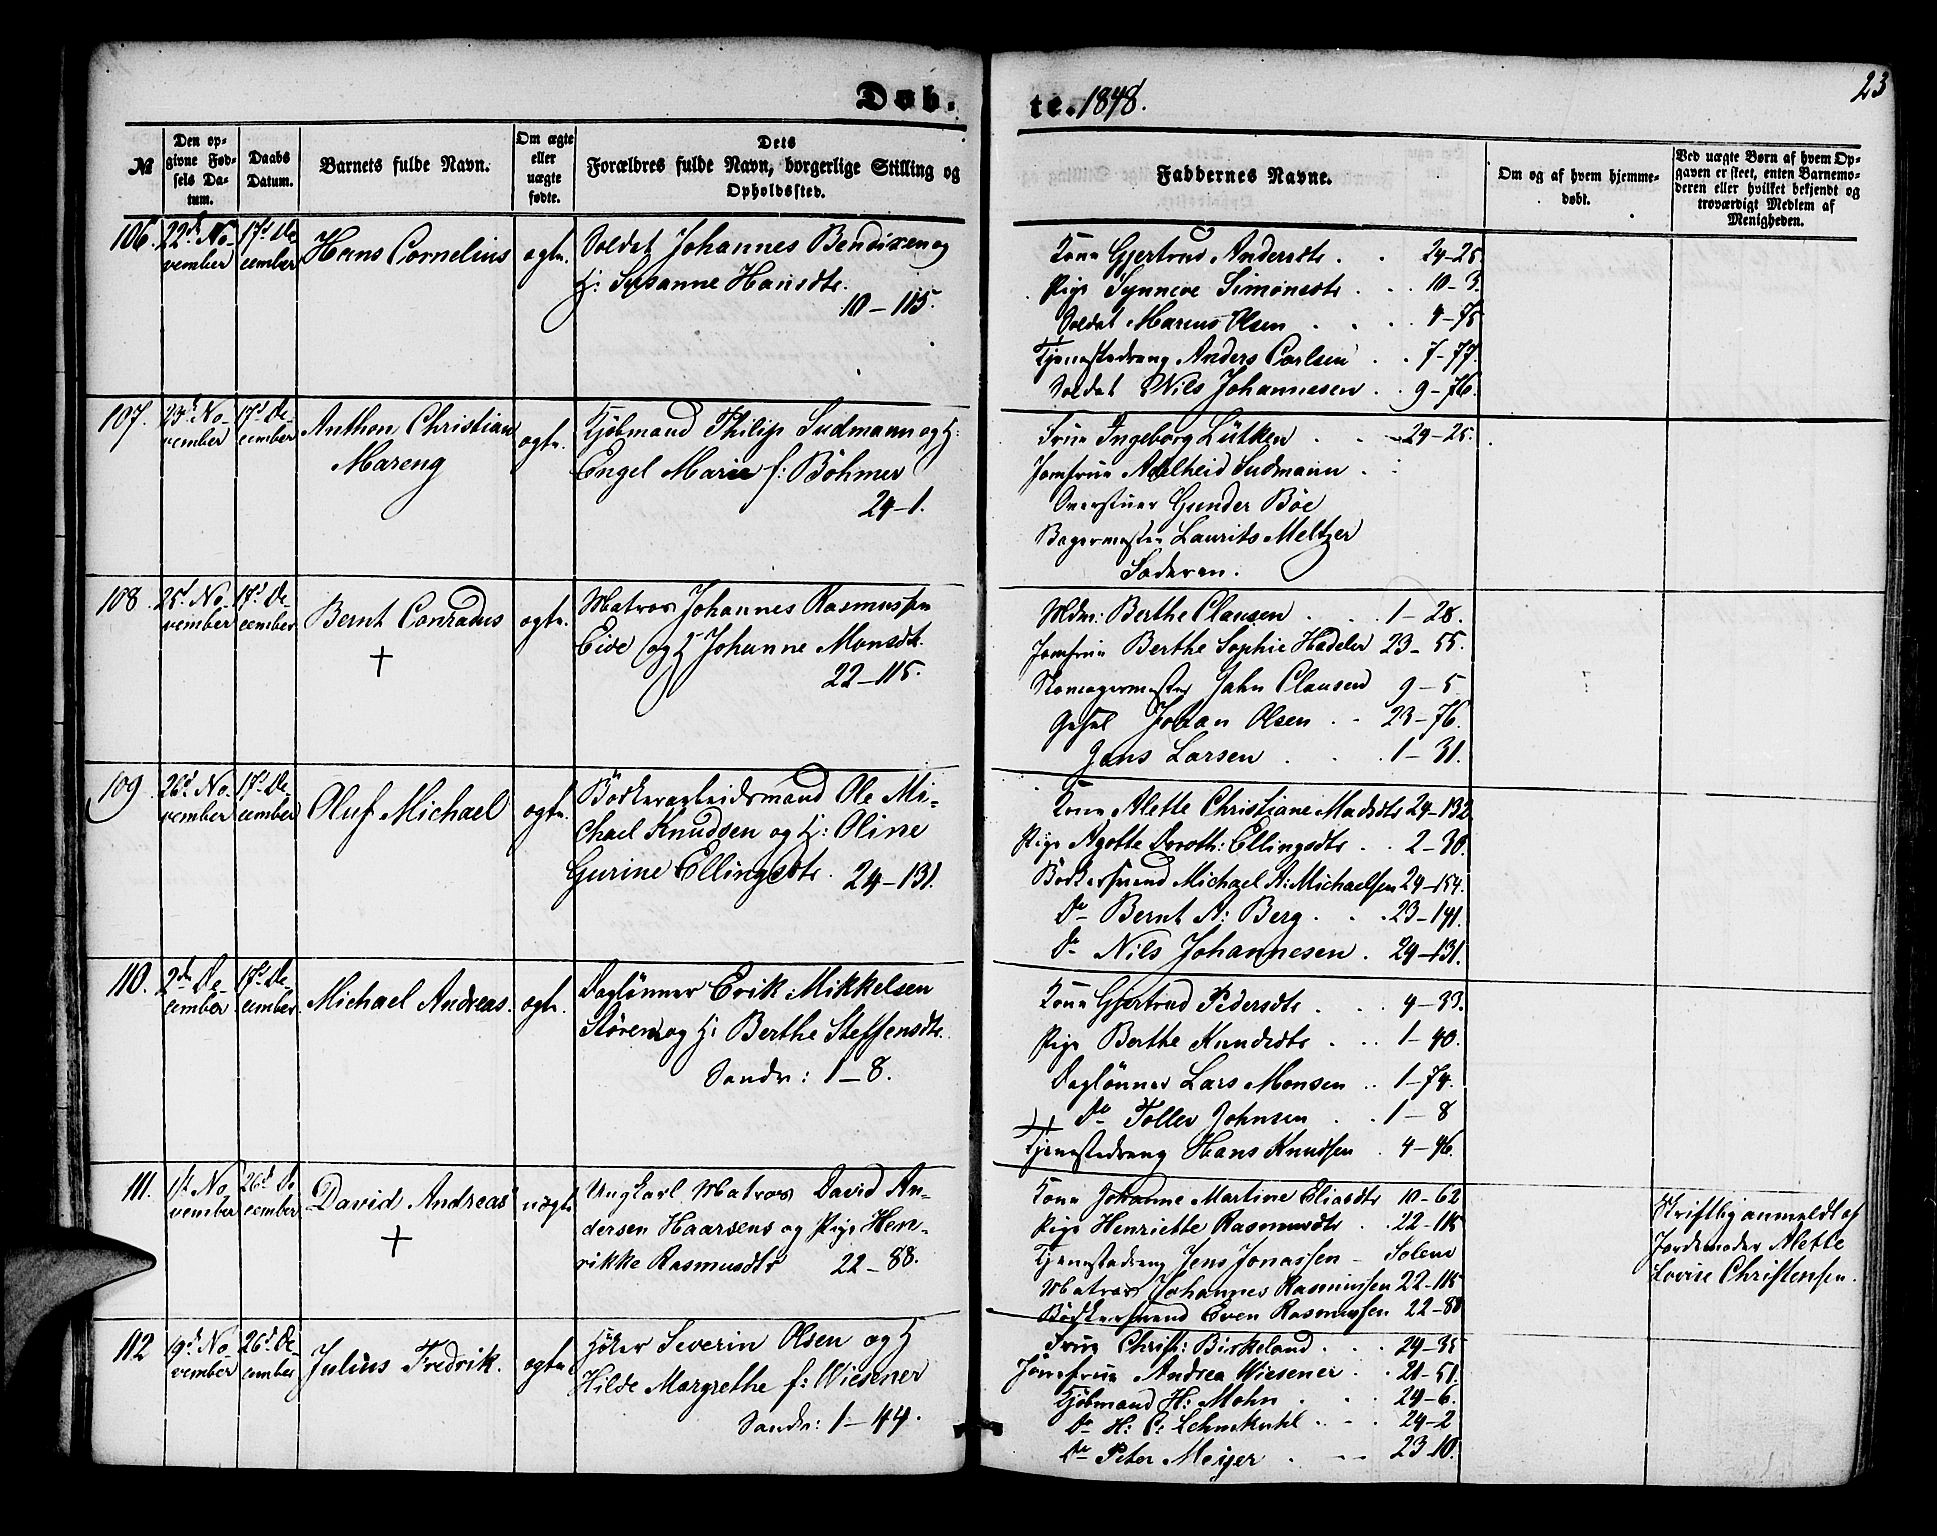 Døb.
te. 1848.
23
№
Den op-
givne Fød-
sels Da-
tum.
Daabs
Datum.
Barnets fulde Navn.
Om ægte
eller
uægte
fødte.
Dets
Forældres fulde Navn, borgerlige Stilling og
Opholdssted.
Faddernes Navne.
Om og af hvem hjemme-
døbt.
Ved uægte Børn af hvem Op-
gaven er skeet, enten Barnemo-
deren eller hvilket bekjendt og
troværdigt Medlem af
Menigheden.
106.
22d No-
vember
17d De
cember
Hans Cornelius
ægte.
Soldat Johannes Bendixen og
H: Susanne Hansdtr.
10-115.
Kone Gjertrud Andersdtr. . 24-25.
Pige Synneve Simonsdtr . . 10-3.
Soldat Marcus Olsen . . . 4-75
Tjenestedreng Anders Carlsen . . 7-77.
Soldat Nils Johannesen . . 9-76.
107.
23d No-
vember
17d De-
cember
Anthon Christian
Mareng
ægte.
Kjøbmand Philip Sudmann og H:
Engel Marie f: Böhmer
24-1.
Frue Ingeborg Lütken . . 29-25.
Jomfrue Adelheid Sudmann .
Overstuer Gunder Böe
Bagermester Laurits Meltzer
Faderen.
108.
25d No-
vember
17d De-
cember
Bernt Conradus
+
ægte.
Matros Johannes Rasmussen
Eide og H Johanne Monsdtr.
22-115.
Mdm: Berthe Clausen . . . 1-28.
Jomfrue Berthe Sophie Hadeler 23-55.
Skomagermester Jahn Clausen 9-5
Gesel Johan Olsen . . 23-76.
Jens Larsen . . 1-31.
109.
26d No-
vember
17d De-
cember
Oluf Michael
ægte.
Bödkerarbeidsmand Ole Mi-
chael Knudsen og H: Oline
Gurine Ellingsdtr. 24-131.
Kone Alette Christiane Madsdtr 24-132
Pige Agotte Doroth: Ellingsdtr . . 2-30.
Bödkersvend Michael A: Michaelsen 24-154.
Do Bernt A: Berg . . . 23-141.
Do Nils Johannesen . 24-131.
110.
2den De-
cember
17d De-
cember.
Michael Andreas.
ægte.
Daglönner Erik Mikkelsen
Stören og H: Berthe Steffensdtr.
Sandv: 1-8.
Kone Gjertrud Pedersdtr . . 4-33.
Pige Berthe Knudsdtr . . . 1-40.
Daglönner Lars Monsen . . 1-74.
Do Tolles Johnsen . . 1-8
Tjenestedreng Hans Knudsen . 4-96.
111.
1ste No-
vember
26d De
cember
David Andreas
+
uægte
Ungkarl Matros David An-
dersen Haarsens og Pige Hen-
rikke Rasmusdtr 22-88.
Kone Johanne Martine Eliasdtr 10-62
Pige Henriette Rasmusdtr . . 22-115
Tjenestedreng Jens Jonassen - Solem
Matros Johannes Rasmussen 22-115
Bödkersvend Even Rasmussen 22-88
Skriftlig anmeldt af
Jordemoder Alette
Lovise Christensen.
112
9d No-
vember
26d De-
cember
Julius Fredrik.
ægte
Höker Severin Olsen og H
Hilde Margrethe f: Wiesener
Sandv: 1-44.
Frue Christ: Birkeland . . . 24-35
Jomfrue Andrea Wiesener . . 21-51.
Kjöbmand H: Mohn . . 24-6.
Do H: C: Lehmkuhl . . . 24-2
Do Peter Meijer . . . 23-10.